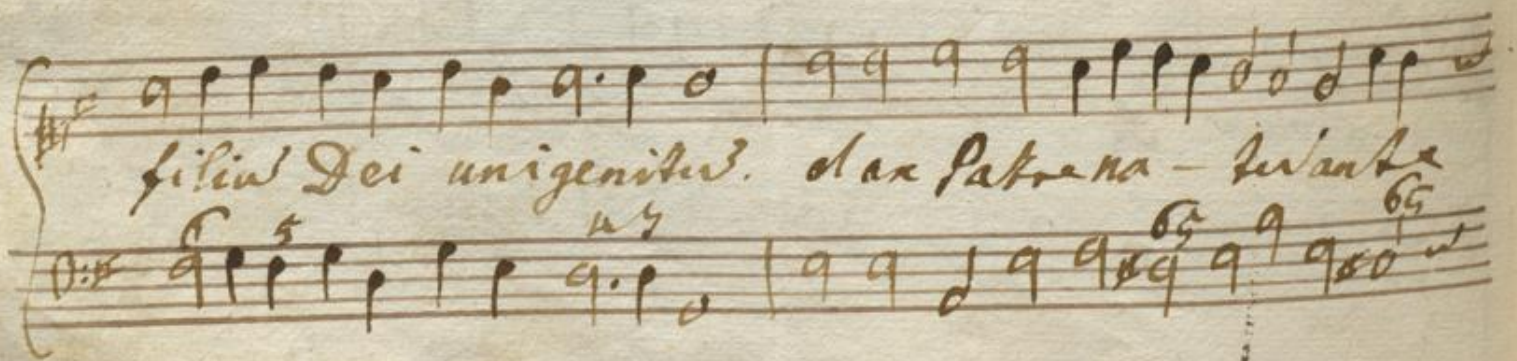 filius Dei unigenitus. et ex Patre na - tus ante
6 5 4 3 65 65